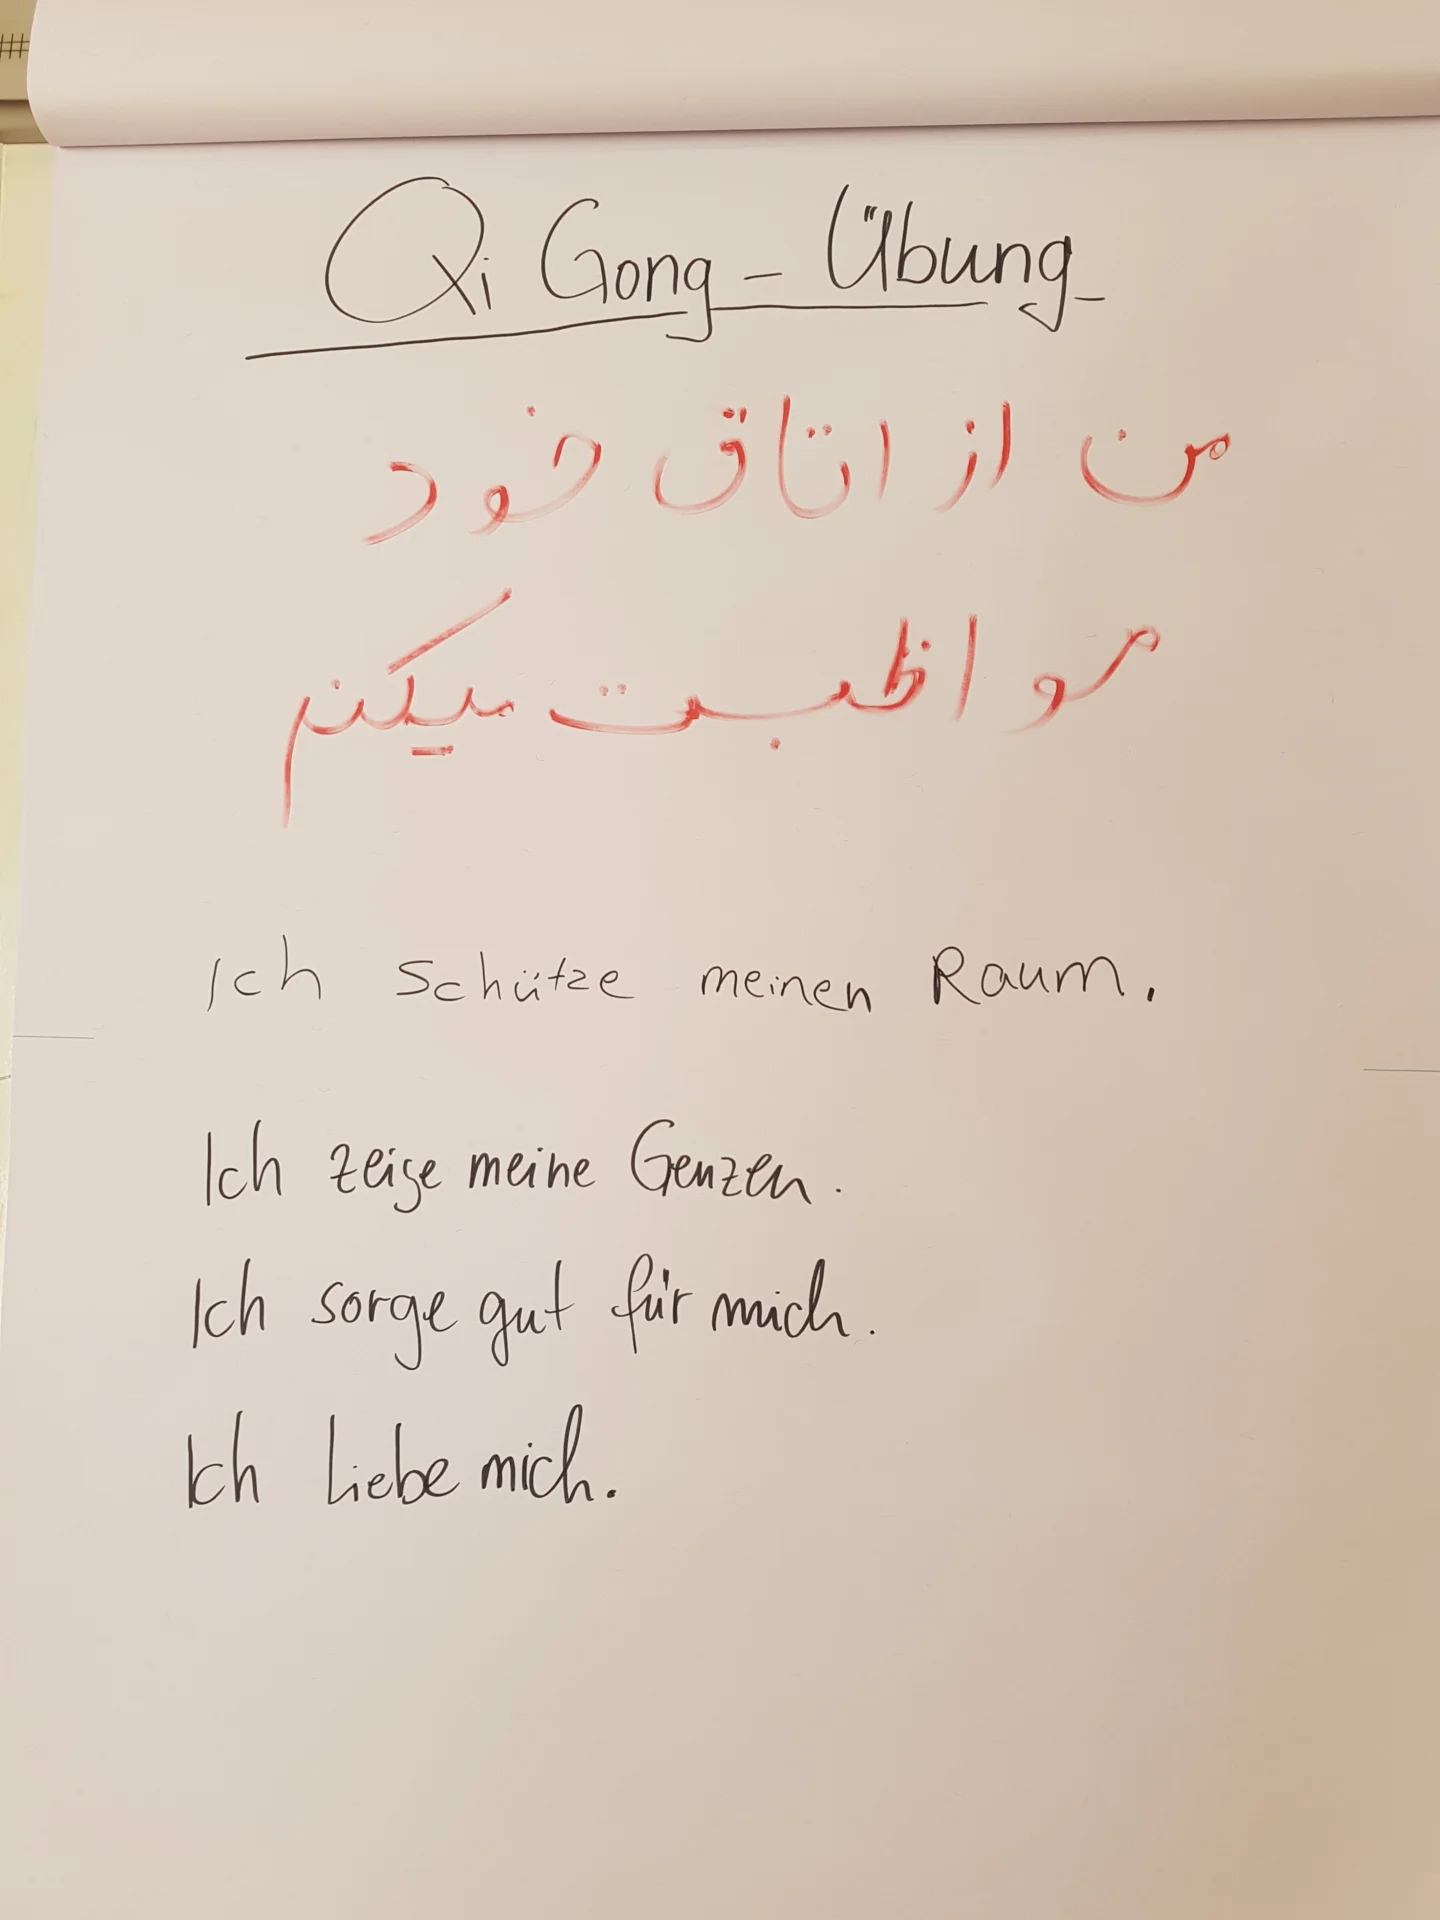 Qi Gong - Übung
من از اتاق خود
مواظبت میکنم
Ich schütze meinen Raum.
Ich zeige meine Genzen.
Ich sorge gut für mich.
Ich liebe mich.